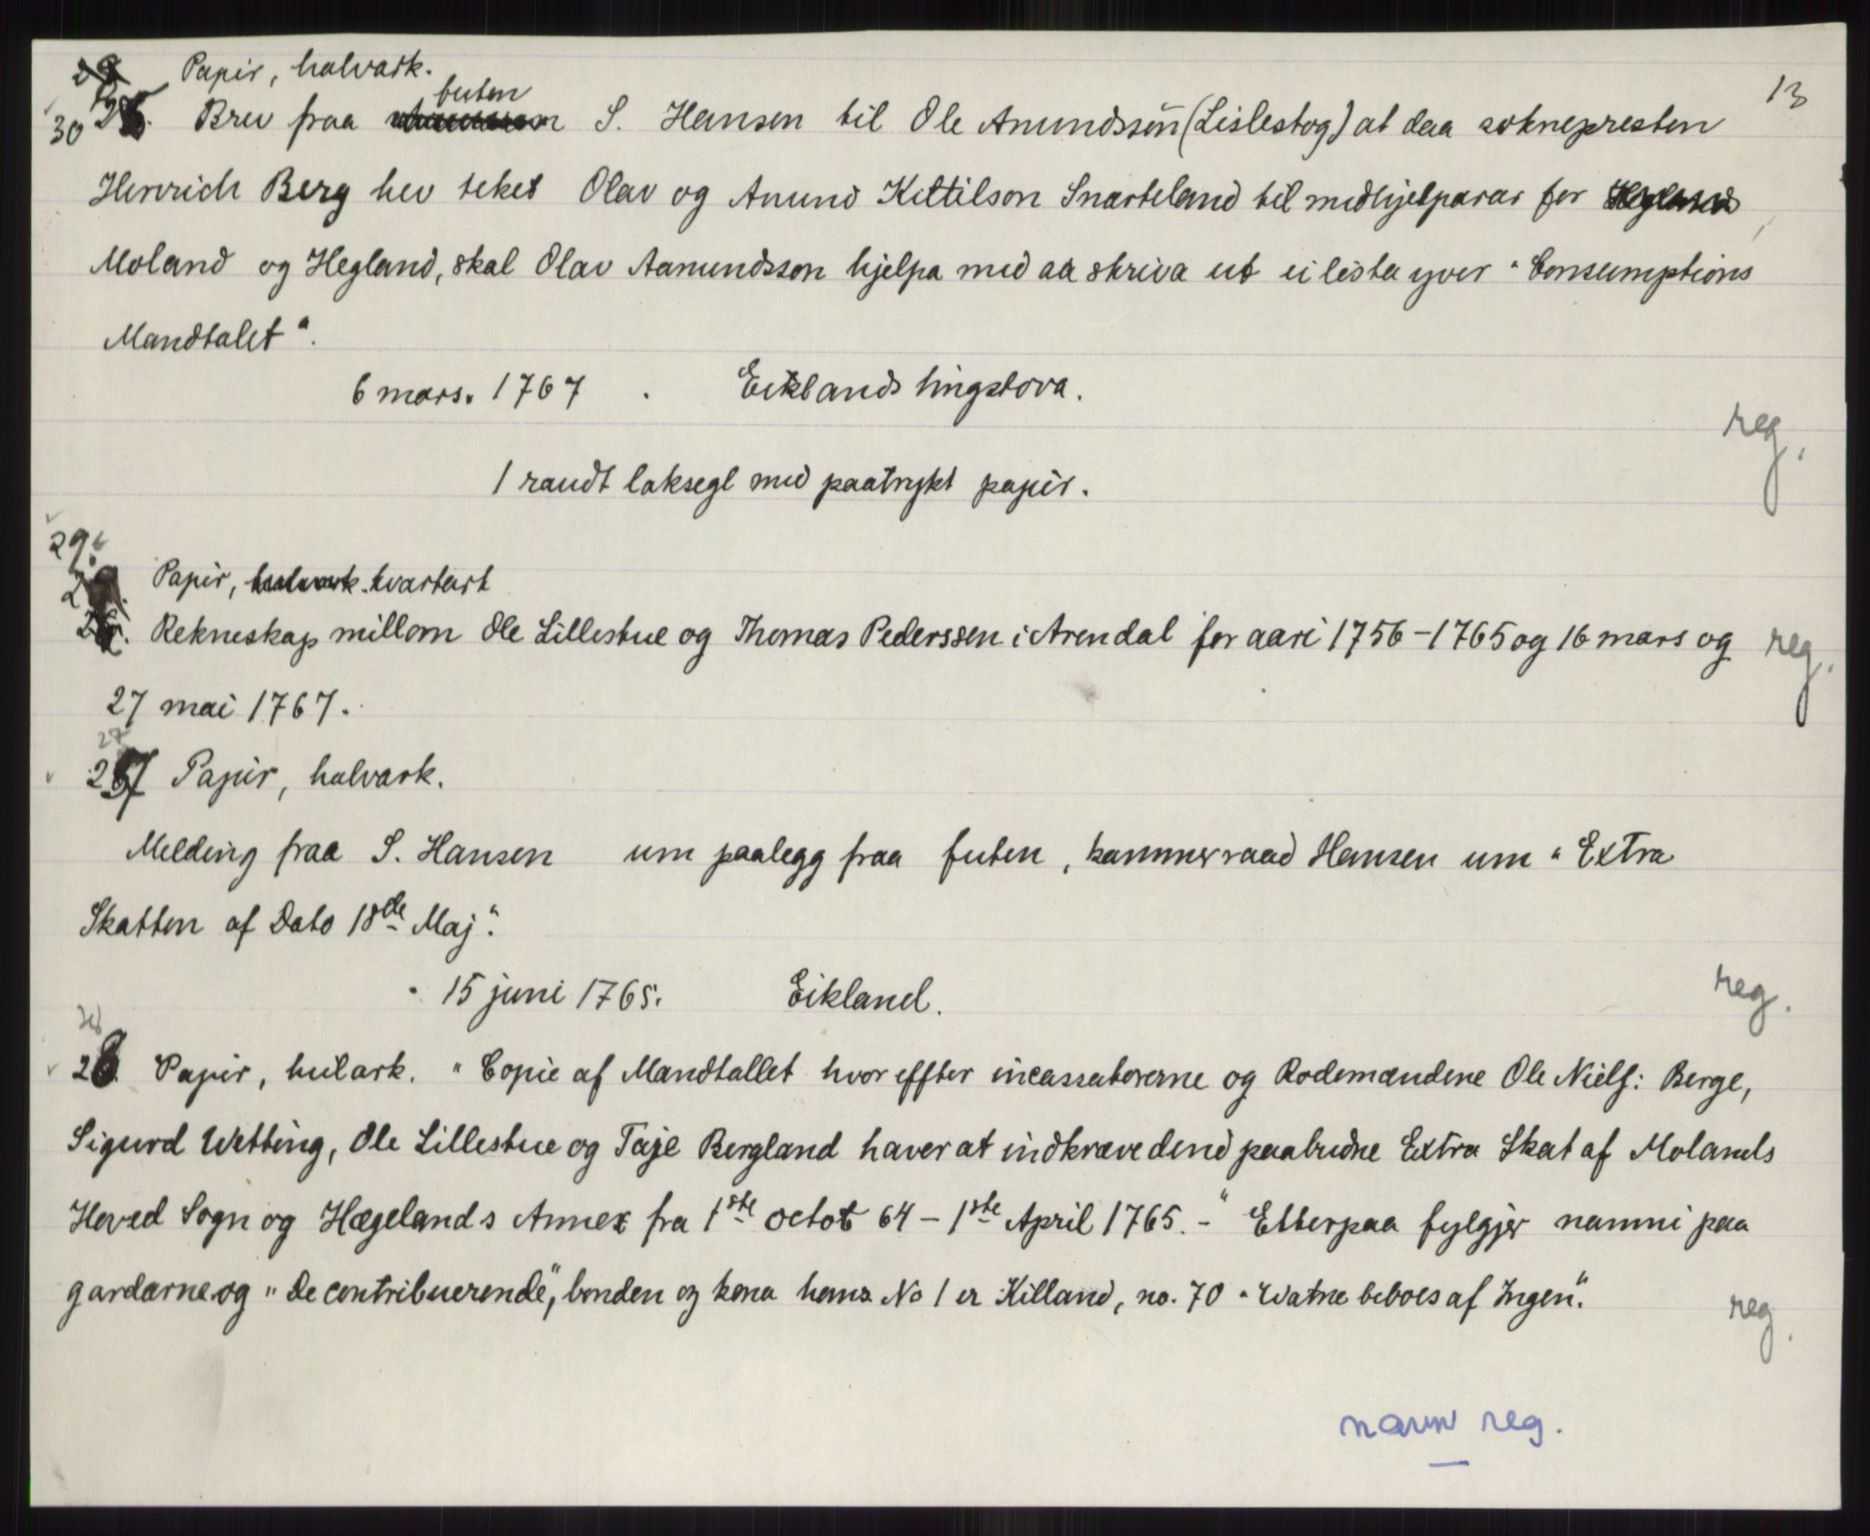 Papir, halvark.
13
30 Brev fraa futen S. Hansen til Ole Anundssön (Lislestog) at daa soknepresten
Henrich Berg hev teket Olav og Anund Kittilson Snarteland til medhjelparar for
Moland og Hegland, skal Olav Aamundsson hjelpa med aa skriva ut ei lista yver "Consumptions
Mandtalet".
6 mars. 1767 . Eiklands tingstova.
reg.
1 raudt laksegl med paatrykt papir.
29.
Papir, halvark. kvartark
Rekneskap millom Ole Lillestue og Thomas Pederssen i Arendal for aari 1756-1765 og 16 mars og reg.
27 mai 1767.
27
27 Papir, halvark.
Melding fraa S. Hansen um paalegg fraa futen, kammerraad Hansen um "Extra
Skatten af Dato 18de Maj".
15 juni 1765. Eikland.
reg.
28. Papir, heilark. "Copie af Mandtallet hvor effter incassatorerne og Rodemændene Ole Niels: Berge,
Sigurd Wetting, Ole Lillestue og Taje Bergland haver at indkræve dend paabudne Extra Skat af Molands
Hoved Sogn og Hægelands Annex fra 1ste octob 64 - 1ste April 1765. -" Etterpaa fylgjer namni paa
gardarne og "De contribuerende", bonden og kona hans No 1 er Killand, no. 70 "Watne beboes af Ingen".
reg.
navn reg.